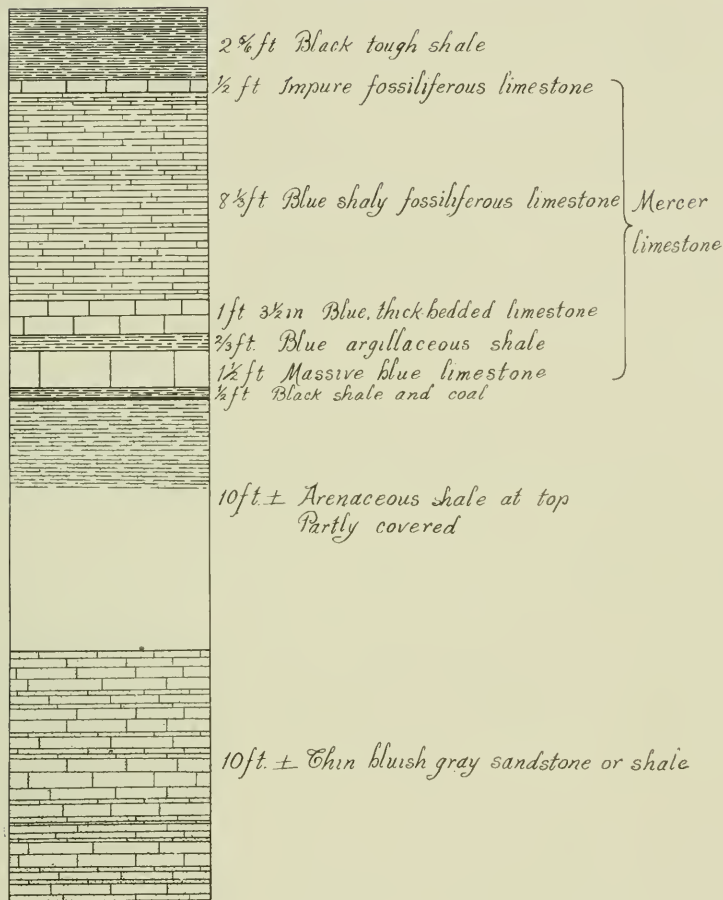 2 5/6 ft Black tough shale
1/2 ft Impure fossiliferous limestone
8 1/3 ft Blue shaly fossiliferous limestone
Mercer
limestone
1 ft 3 1/2 in Blue, thick-bedded limestone
2/3 ft. Blue argillaceous shale
1 1/2 ft Massive blue limestone
1/2 ft Black shale and coal
10 ft. ± Arenaceous shale at top
Partly covered
10 ft. ± Thin bluish gray sandstone or shale